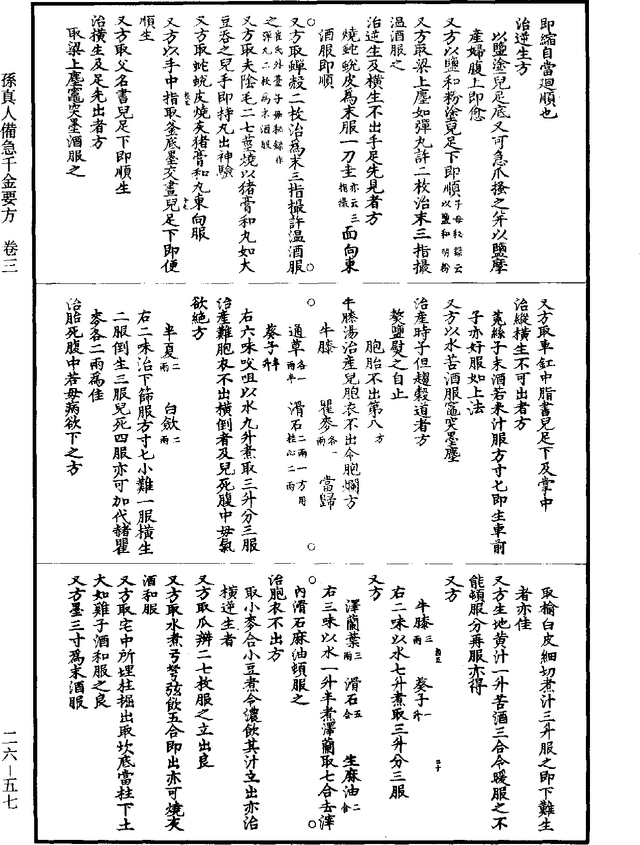 即縮自當迴順也
治逆生方
以鹽塗兒足底又可急爪搔之并以鹽摩
產婦腹上即愈
又方以鹽和粉塗兒足下即順子母秘錄云以鹽和胡粉
又方取梁上塵如彈丸許二枚治末三指撮
溫酒服之
治逆生及橫生不出手足先見者方
燒蛇蛻皮為末服一刀圭亦云三指撮面向東
酒服即順
又方取蟬殼二枚治為末三指撮許溫酒服
之崔氏外臺子母秘錄作彈丸二枚為末酒服
又方取夫陰毛二七莖燒以猪膏和丸如大
豆吞之兒手即持丸出神驗
又方取蛇蛻皮燒灰猪膏和丸東向服
又方以手中指取釜底墨交畫兒足下即便
順生
又方取父名書兒足下即順生
治橫生及足先出者方
取梁上塵竈突墨酒服之
又方取車釭中脂書兒足下及掌中
治縱橫生不可出者方
菟絲子末酒若米汁服方寸匕即生車前
子亦好服如上法
又方以水苦酒服竈突墨塵
治產時子但趨穀道者方
熬鹽熨之自止
胞胎不出第八方
牛膝湯治產兒胞衣不出令胞爛方
牛膝 瞿麥各一兩 當歸
通草各一兩半 滑石二兩一方用桂心二兩
葵子半升
右六味㕮咀以水九升煮取三升分三服
治產難胞衣不出橫倒者及兒死腹中母氣
欲絕方
半夏二兩 白蘞二兩
右二味治下篩服方寸匕小難一服橫生
二服倒生三服兒死四服亦可加代赭瞿
麥各二兩為佳
治胎死腹中若母病欲下之方
取榆白皮細切煮汁三升服之即下難生
者亦佳
又方生地黃汁一升苦酒三合令暖服之不
能頓服分再服亦得
又方
牛膝三兩 葵子一升
右二味以水七升煮取三升分三服
又方
澤蘭葉三兩 滑石五合 生麻油二合
右三味以水一升半煮澤蘭取七合去滓
內滑石麻油頓服之
治胞衣不出方
取小麥合小豆煮令濃飲其汁立出亦治
橫逆生者
又方取瓜瓣二七枚服之立出良
又方取水煮弓弩弦飲五合即出亦可燒灰
酒和服
又方取宅中所埋柱掘出取坎底當柱下土
大如雞子酒和服之良
又方墨三寸為末酒服
孫真人備急千金要方 卷三
二六—五七